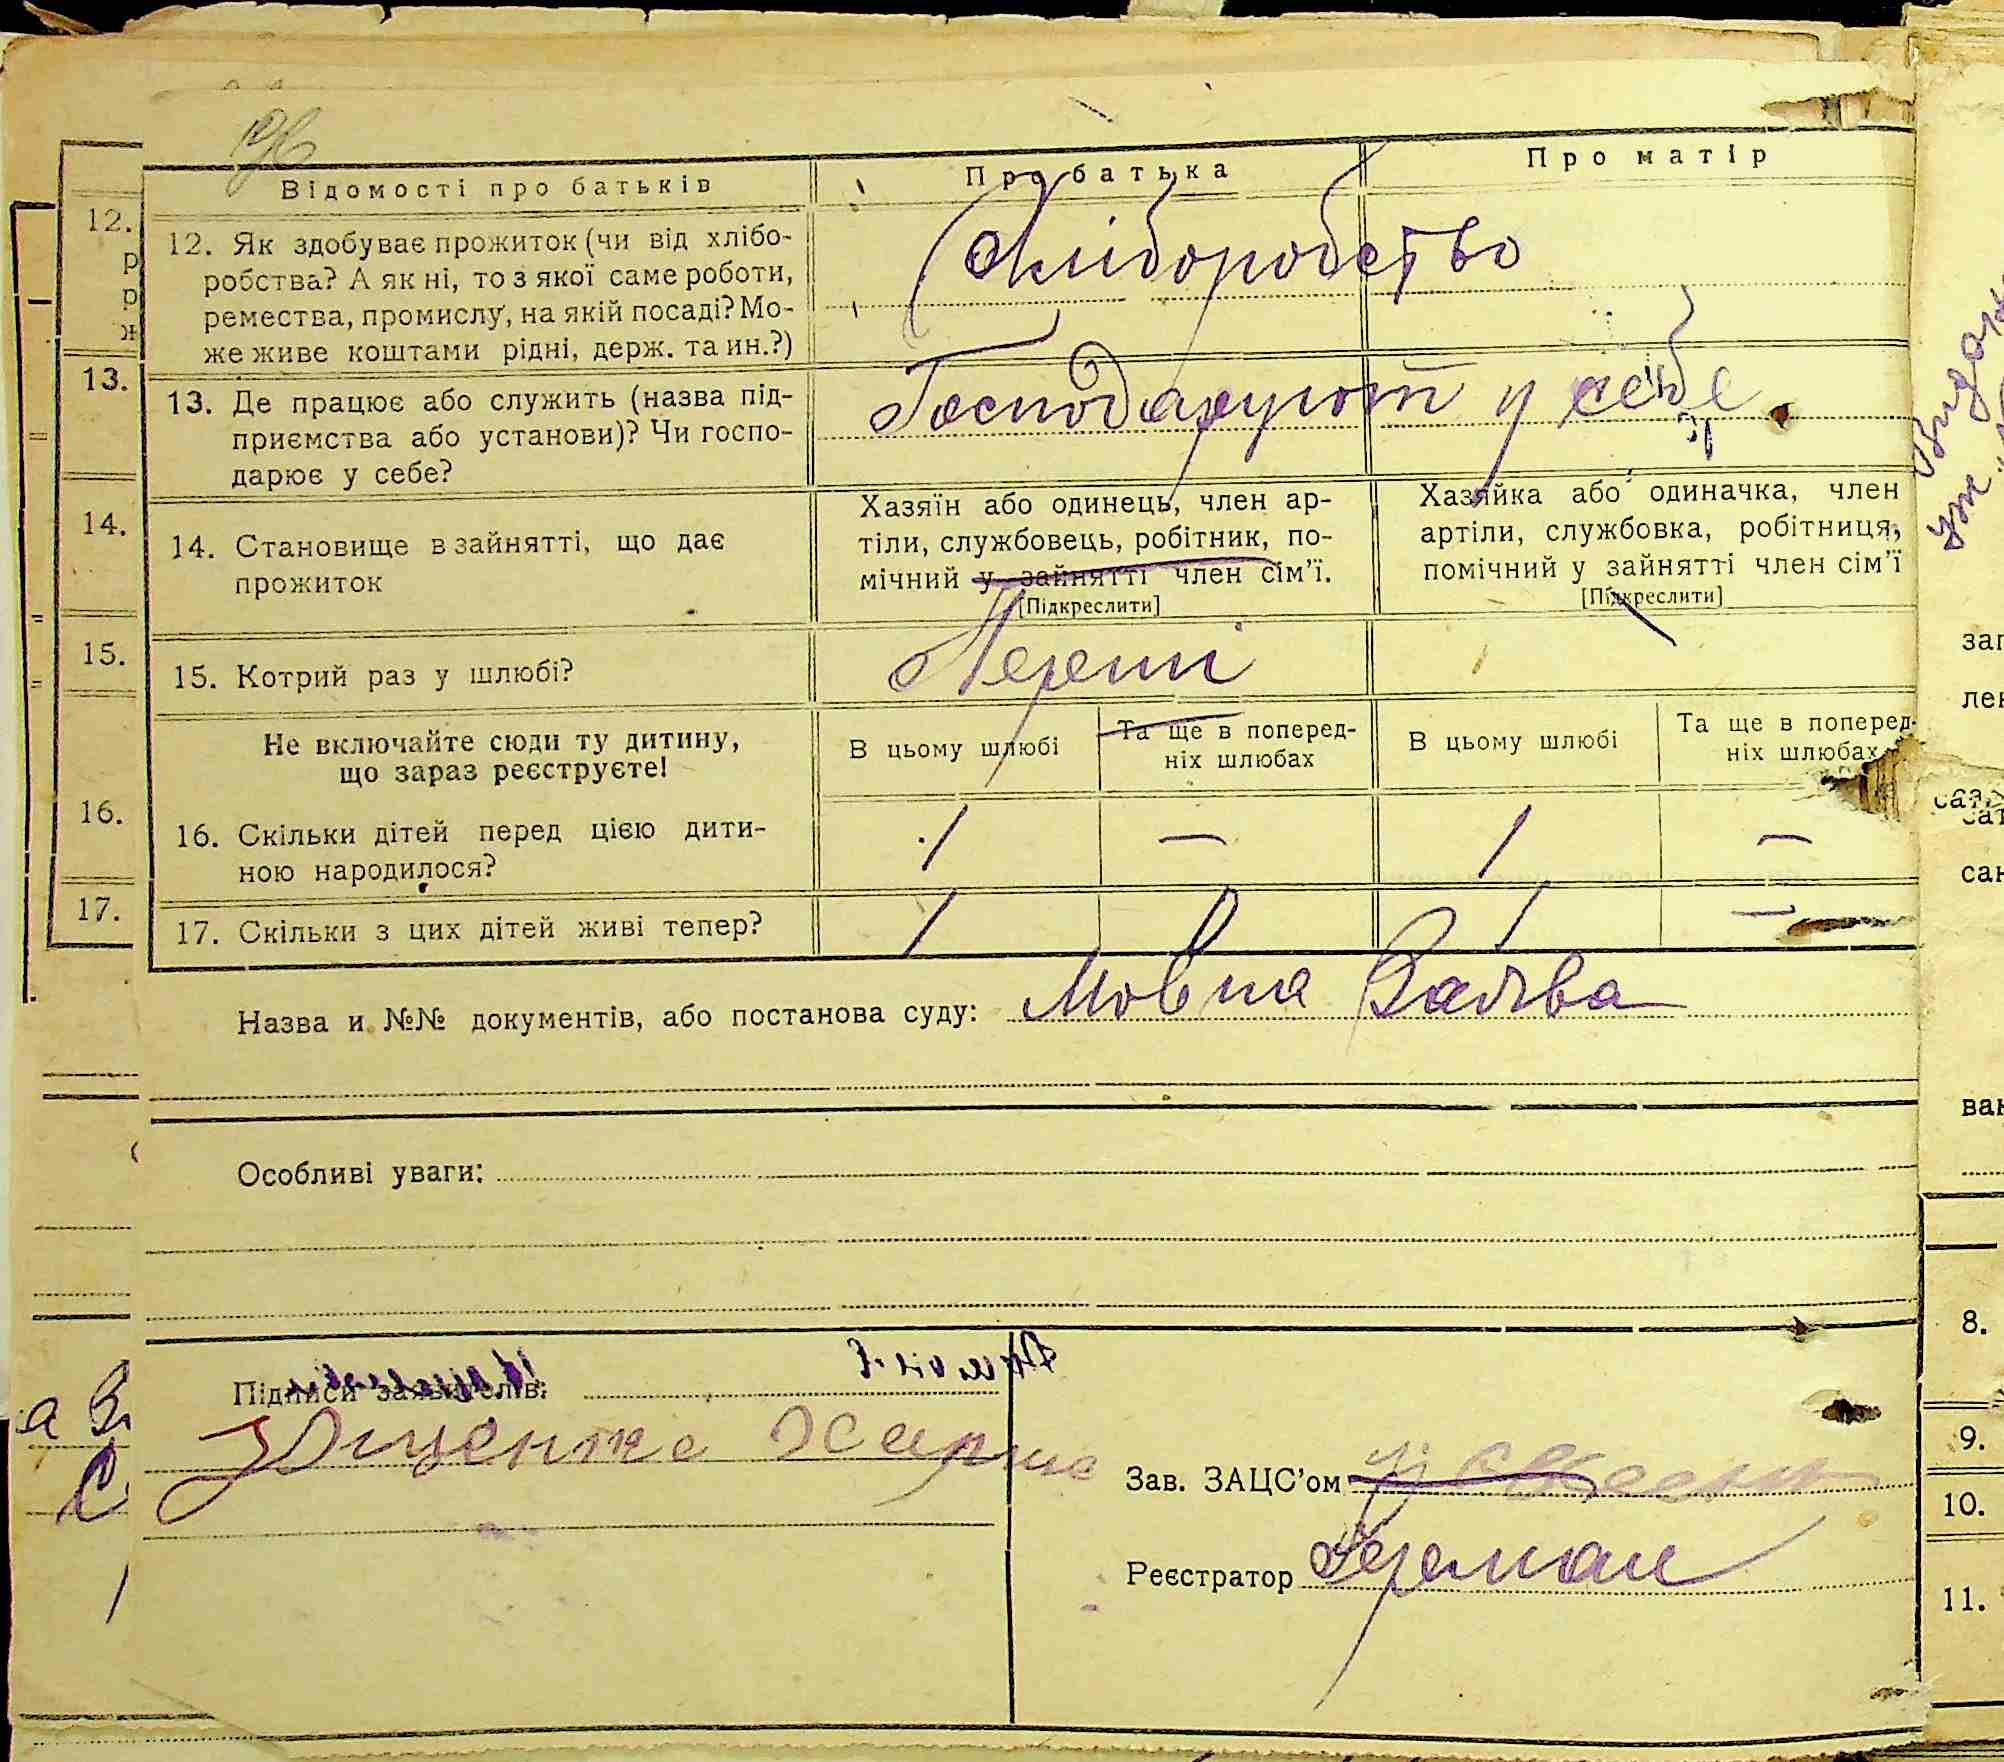 Відомості про батьків
Про батька
Про матір
12. Як здобуває прожиток (чи від хлібо-
робства? А як ні, то з якої саме роботи,
ремества, промислу, на якій посаді? Мо-
же живе коштами рідні, держ. та ин.?)
Хліборобство
13. Де працює або служить (назва під-
приємства або установи)? Чи госпо-
дарює у себе?
Господарують у себе
14. Становище в зайнятті, що дає
прожиток
Хазяїн або одинець, член ар-
тіли, службовець, робітник, по-
мічний у зайнятті член сім'ї.
[Підкреслити]
Хазяйка або одиначка, член
артіли, службовка, робітниця,
помічний у зайнятті член сім'ї
[Підкреслити]
15. Котрий раз у шлюбі?
Перший
Не включайте сюди ту дитину,
що зараз реєструєте!
В цьому шлюбі
Та ще в поперед-
ніх шлюбах
В цьому шлюбі
Та ще в поперед-
ніх шлюбах
16. Скільки дітей перед цією дити-
ною народилося?
1 — 1 —
17. Скільки з цих дітей живі тепер?
1 1 —
Назва и №№ документів, або постанова суду: Мовна Заява
Особливі уваги:
Підписи заявителів:
Зав. ЗАЦС'ом
Реєстратор
12.
13.
14.
15.
16.
17.
8.
9.
10.
11.